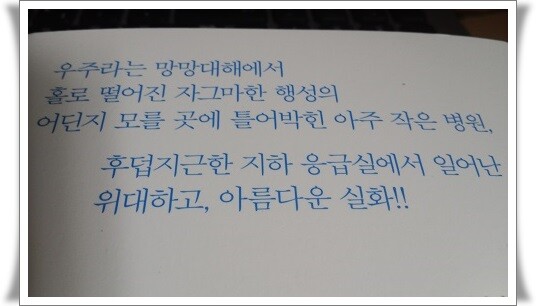 우주라는 망망대해에서
홀로 떨어진 자그마한 행성의
어딘지 모를 곳에 틀어박힌 아주 작은 병원,
후덥지근한 지하 응급실에서 일어난
위대하고, 아름다운 실화!!